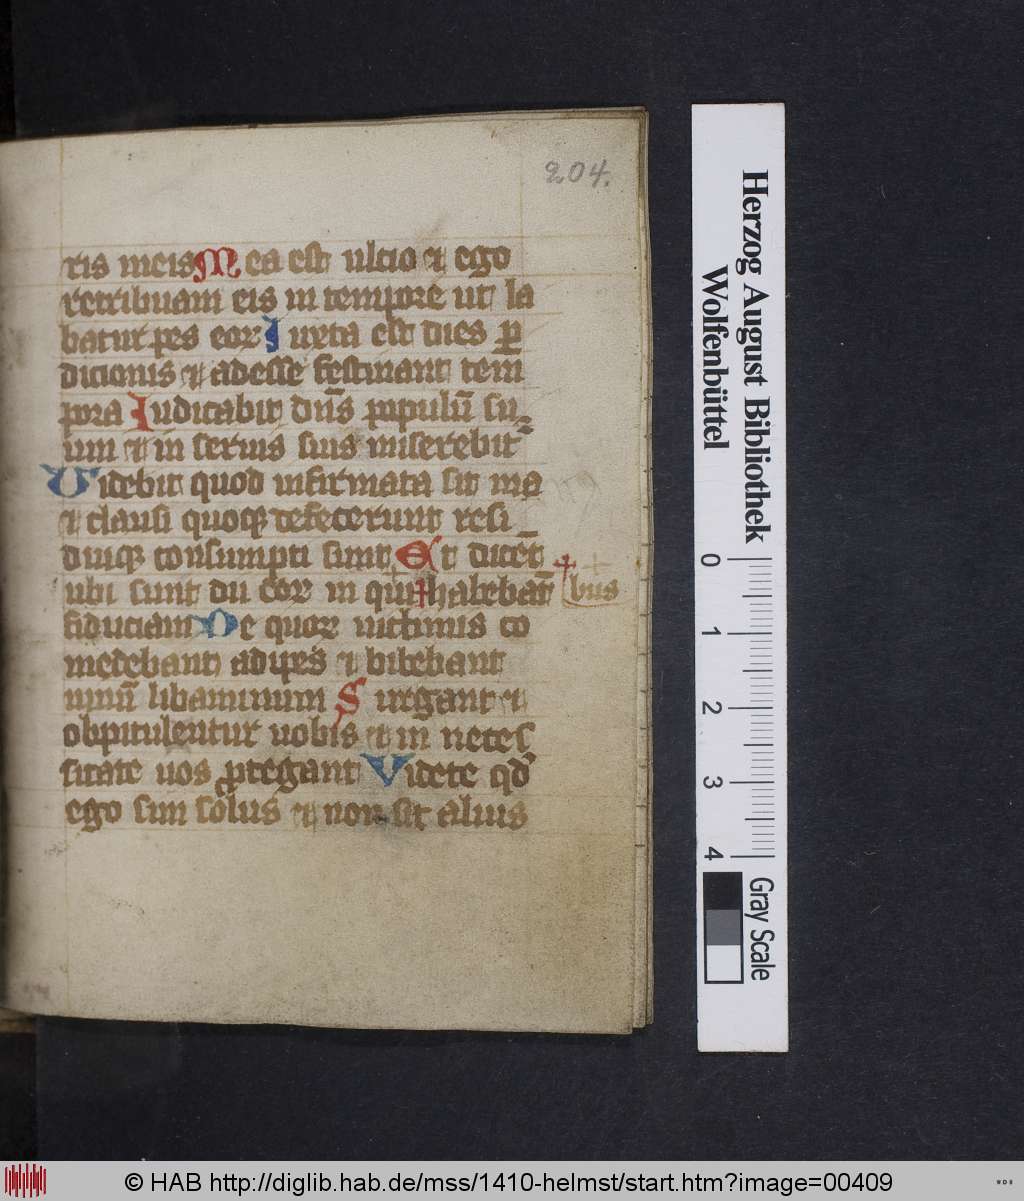 204.
ris meis Mea est ulcio et ego
retribuam eis in tempore ut la
batur pes eor Iuxta est dies ꝑ
dicionis et adesse festinant tem
pora Iudicabit dn̄s populū su
um et in seruis suis miserebit᷑
Uidebit quod infirmata sit ma
et clausi quoqꝫ defecerunt resi
duiqꝫ consumpti sunt Et dicēt
ubi sunt dii eoꝝ in qui†habebāt †bus
fiduciam De quoꝝ uictimis co
medebant adipes et bibebant
uinū libaminum Surgant et
obpitulentur uobis et in neces
sitate uos ꝓtegant Videte qd̓
ego sim solus et non sit alius
Herzog August Bibliothek
Wolfenbüttel
0 1 2 3 4
Gray Scale
© HAB http://diglib.hab.de/mss/1410-helmst/start.htm?image=00409